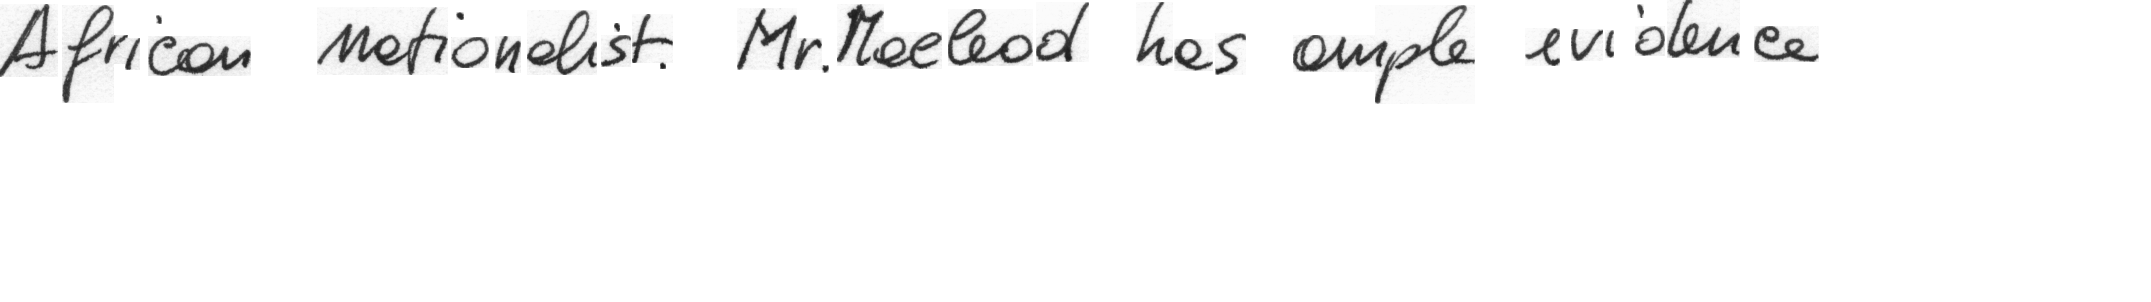 African nationalist. Mr. Macleod has ample evidence